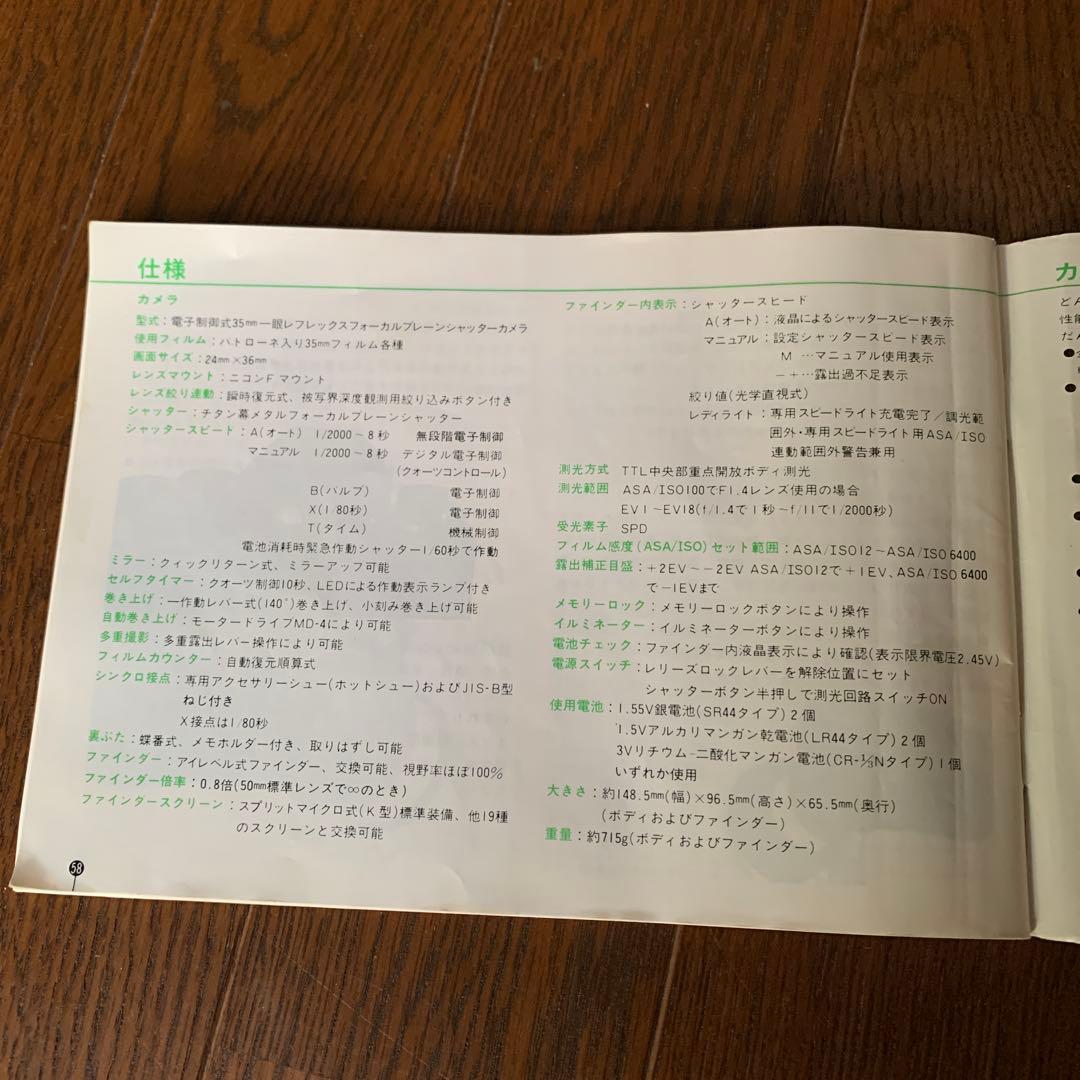 仕様
カメラ
型式：電子制御式35mm一眼レフレックスフォーカルプレーンシャッターカメラ
使用フィルム：パトローネ入り35mmフィルム各種
画面サイズ：24mm×36mm
レンズマウント：ニコンFマウント
レンズ絞り連動：瞬時復元式、被写界深度観測用絞り込みボタン付き
シャッター：チタン幕メタルフォーカルプレーンシャッター
シャッタースピード：A(オート) 1/2000～8秒 無段階電子制御
マニュアル 1/2000～8秒 デジタル電子制御
(クオーツコントロール)
B(バルブ) 電子制御
X(1/80秒) 電子制御
T(タイム) 機械制御
電池消耗時緊急作動シャッター1/60秒で作動
ミラー：クィックリターン式、ミラーアップ可能
セルフタイマー：クオーツ制御10秒、LEDによる作動表示ランプ付き
巻き上げ：一作動レバー式(140°)巻き上げ、小刻み巻き上げ可能
自動巻き上げ：モータードライブMD-4により可能
多重撮影：多重露出レバー操作により可能
フィルムカウンター：自動復元順算式
シンクロ接点：専用アクセサリーシュー(ホットシュー)およびJIS-B型
ねじ付き
X接点は1/80秒
裏ぶた：蝶番式、メモホルダー付き、取りはずし可能
ファインダー：アイレベル式ファインダー、交換可能、視野率ほぼ100％
ファインダー倍率：0.8倍(50mm標準レンズで∞のとき)
ファインダースクリーン：スプリットマイクロ式(K型)標準装備、他19種
のスクリーンと交換可能
58
ファインダー内表示：シャッタースピード
A(オート)：液晶によるシャッタースピード表示
マニュアル：設定シャッタースピード表示
M …マニュアル使用表示
－＋…露出過不足表示
絞り値(光学直視式)
レディライト：専用スピードライト充電完了/調光範
囲外・専用スピードライト用ASA/ISO
連動範囲外警告兼用
測光方式 TTL中央部重点開放ボディ測光
測光範囲 ASA/ISO100でF1.4レンズ使用の場合
EV1～EV18(f/1.4で1秒～f/11で1/2000秒)
受光素子 SPD
フィルム感度(ASA/ISO)セット範囲：ASA/ISO12～ASA/ISO6400
露出補正目盛：＋2EV～－2EV ASA/ISO12で＋1EV、ASA/ISO6400
で－1EVまで
メモリーロック：メモリーロックボタンにより操作
イルミネーター：イルミネーターボタンにより操作
電池チェック：ファインダー内液晶表示により確認(表示限界電圧2.45V)
電源スイッチ：レリーズロックレバーを解除位置にセット
シャッターボタン半押しで測光回路スイッチON
使用電池：1.55V銀電池(SR44タイプ)2個
1.5Vアルカリマンガン乾電池(LR44タイプ)2個
3Vリチウム-二酸化マンガン電池(CR-⅓Nタイプ)1個
いずれか使用
大きさ：約148.5mm(幅)×96.5mm(高さ)×65.5mm(奥行)
(ボディおよびファインダー)
重量：約715g(ボディおよびファインダー)
カ
どん
性能
だん